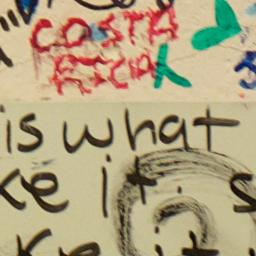 COSTA
RICA
is what
ke it. s
ke it